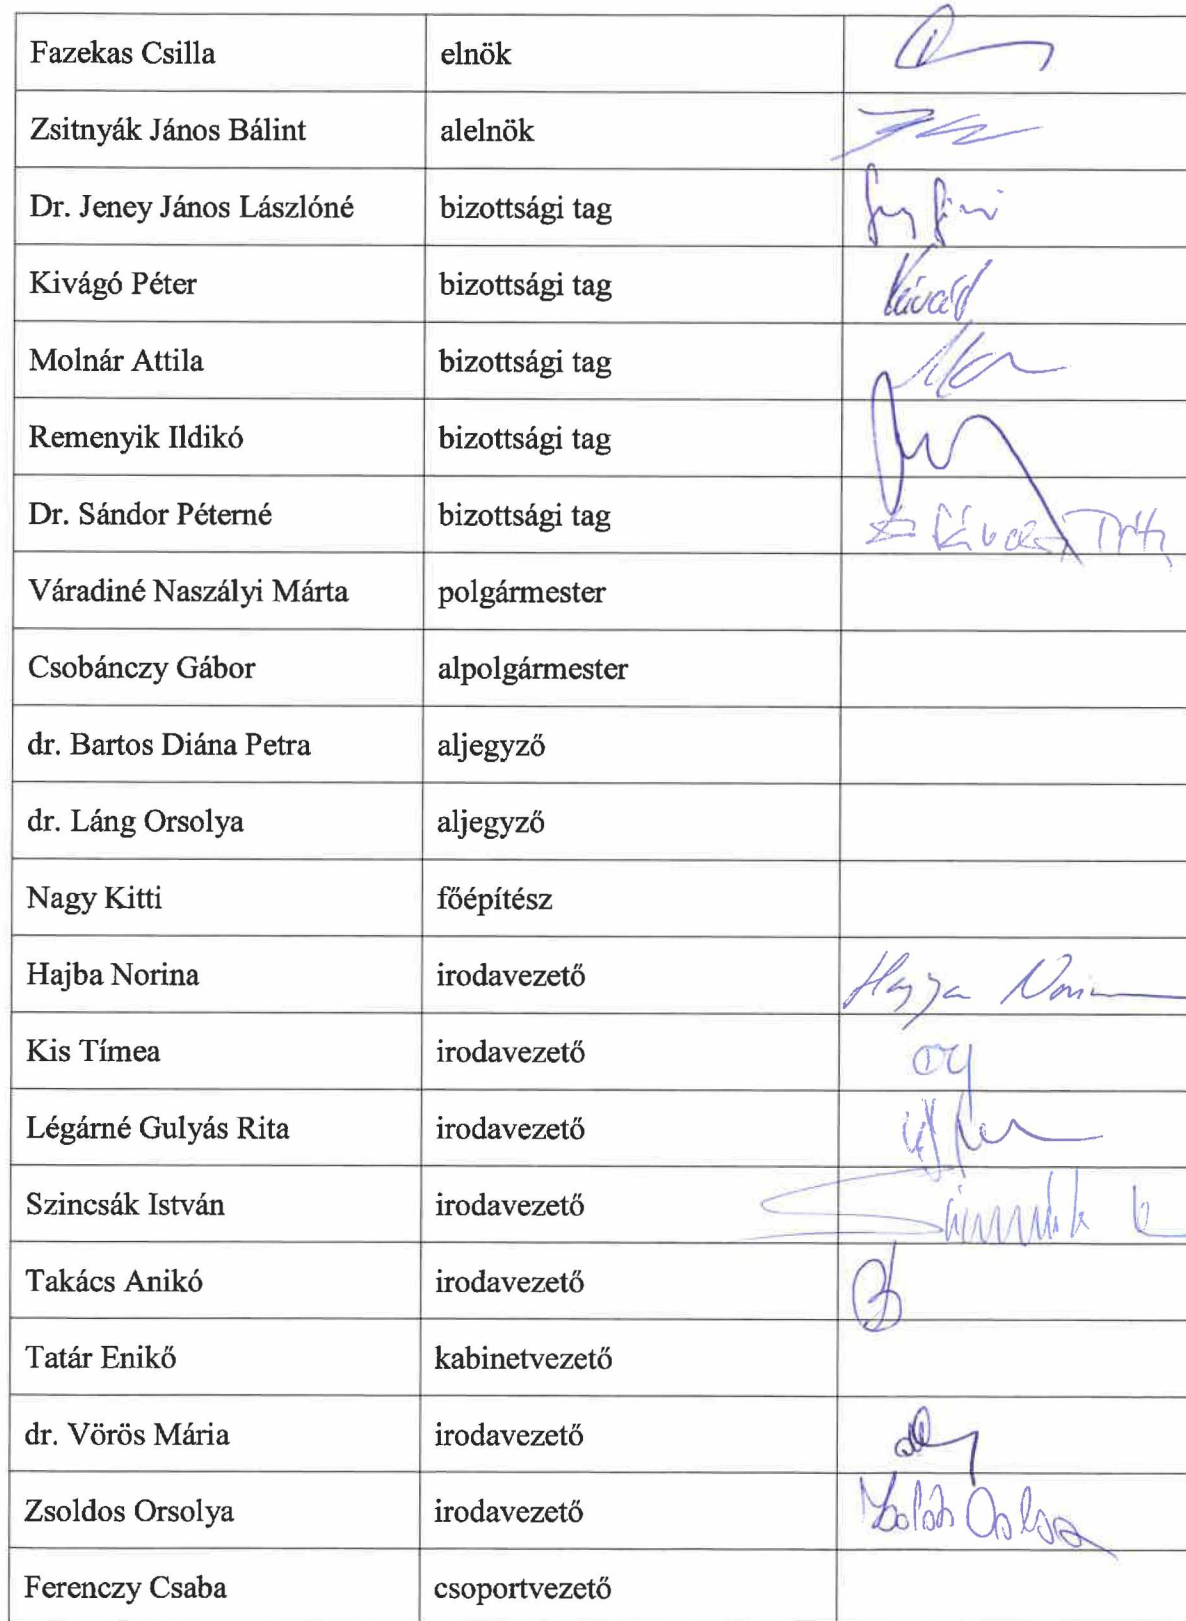 Fazekas Csilla elnök
Zsitnyák János Bálint alelnök
Dr. Jeney János Lászlóné bizottsági tag
Kivágó Péter bizottsági tag
Molnár Attila bizottsági tag
Remenyik Ildikó bizottsági tag
Dr. Sándor Péterné bizottsági tag
Váradiné Naszályi Márta polgármester
Csobánczy Gábor alpolgármester
dr. Bartos Diána Petra aljegyző
dr. Láng Orsolya aljegyző
Nagy Kitti főépítész
Hajba Norina irodavezető
Kis Tímea irodavezető
Légárné Gulyás Rita irodavezető
Szincsák István irodavezető
Takács Anikó irodavezető
Tatár Enikő kabinetvezető
dr. Vörös Mária irodavezető
Zsoldos Orsolya irodavezető
Ferenczy Csaba csoportvezető